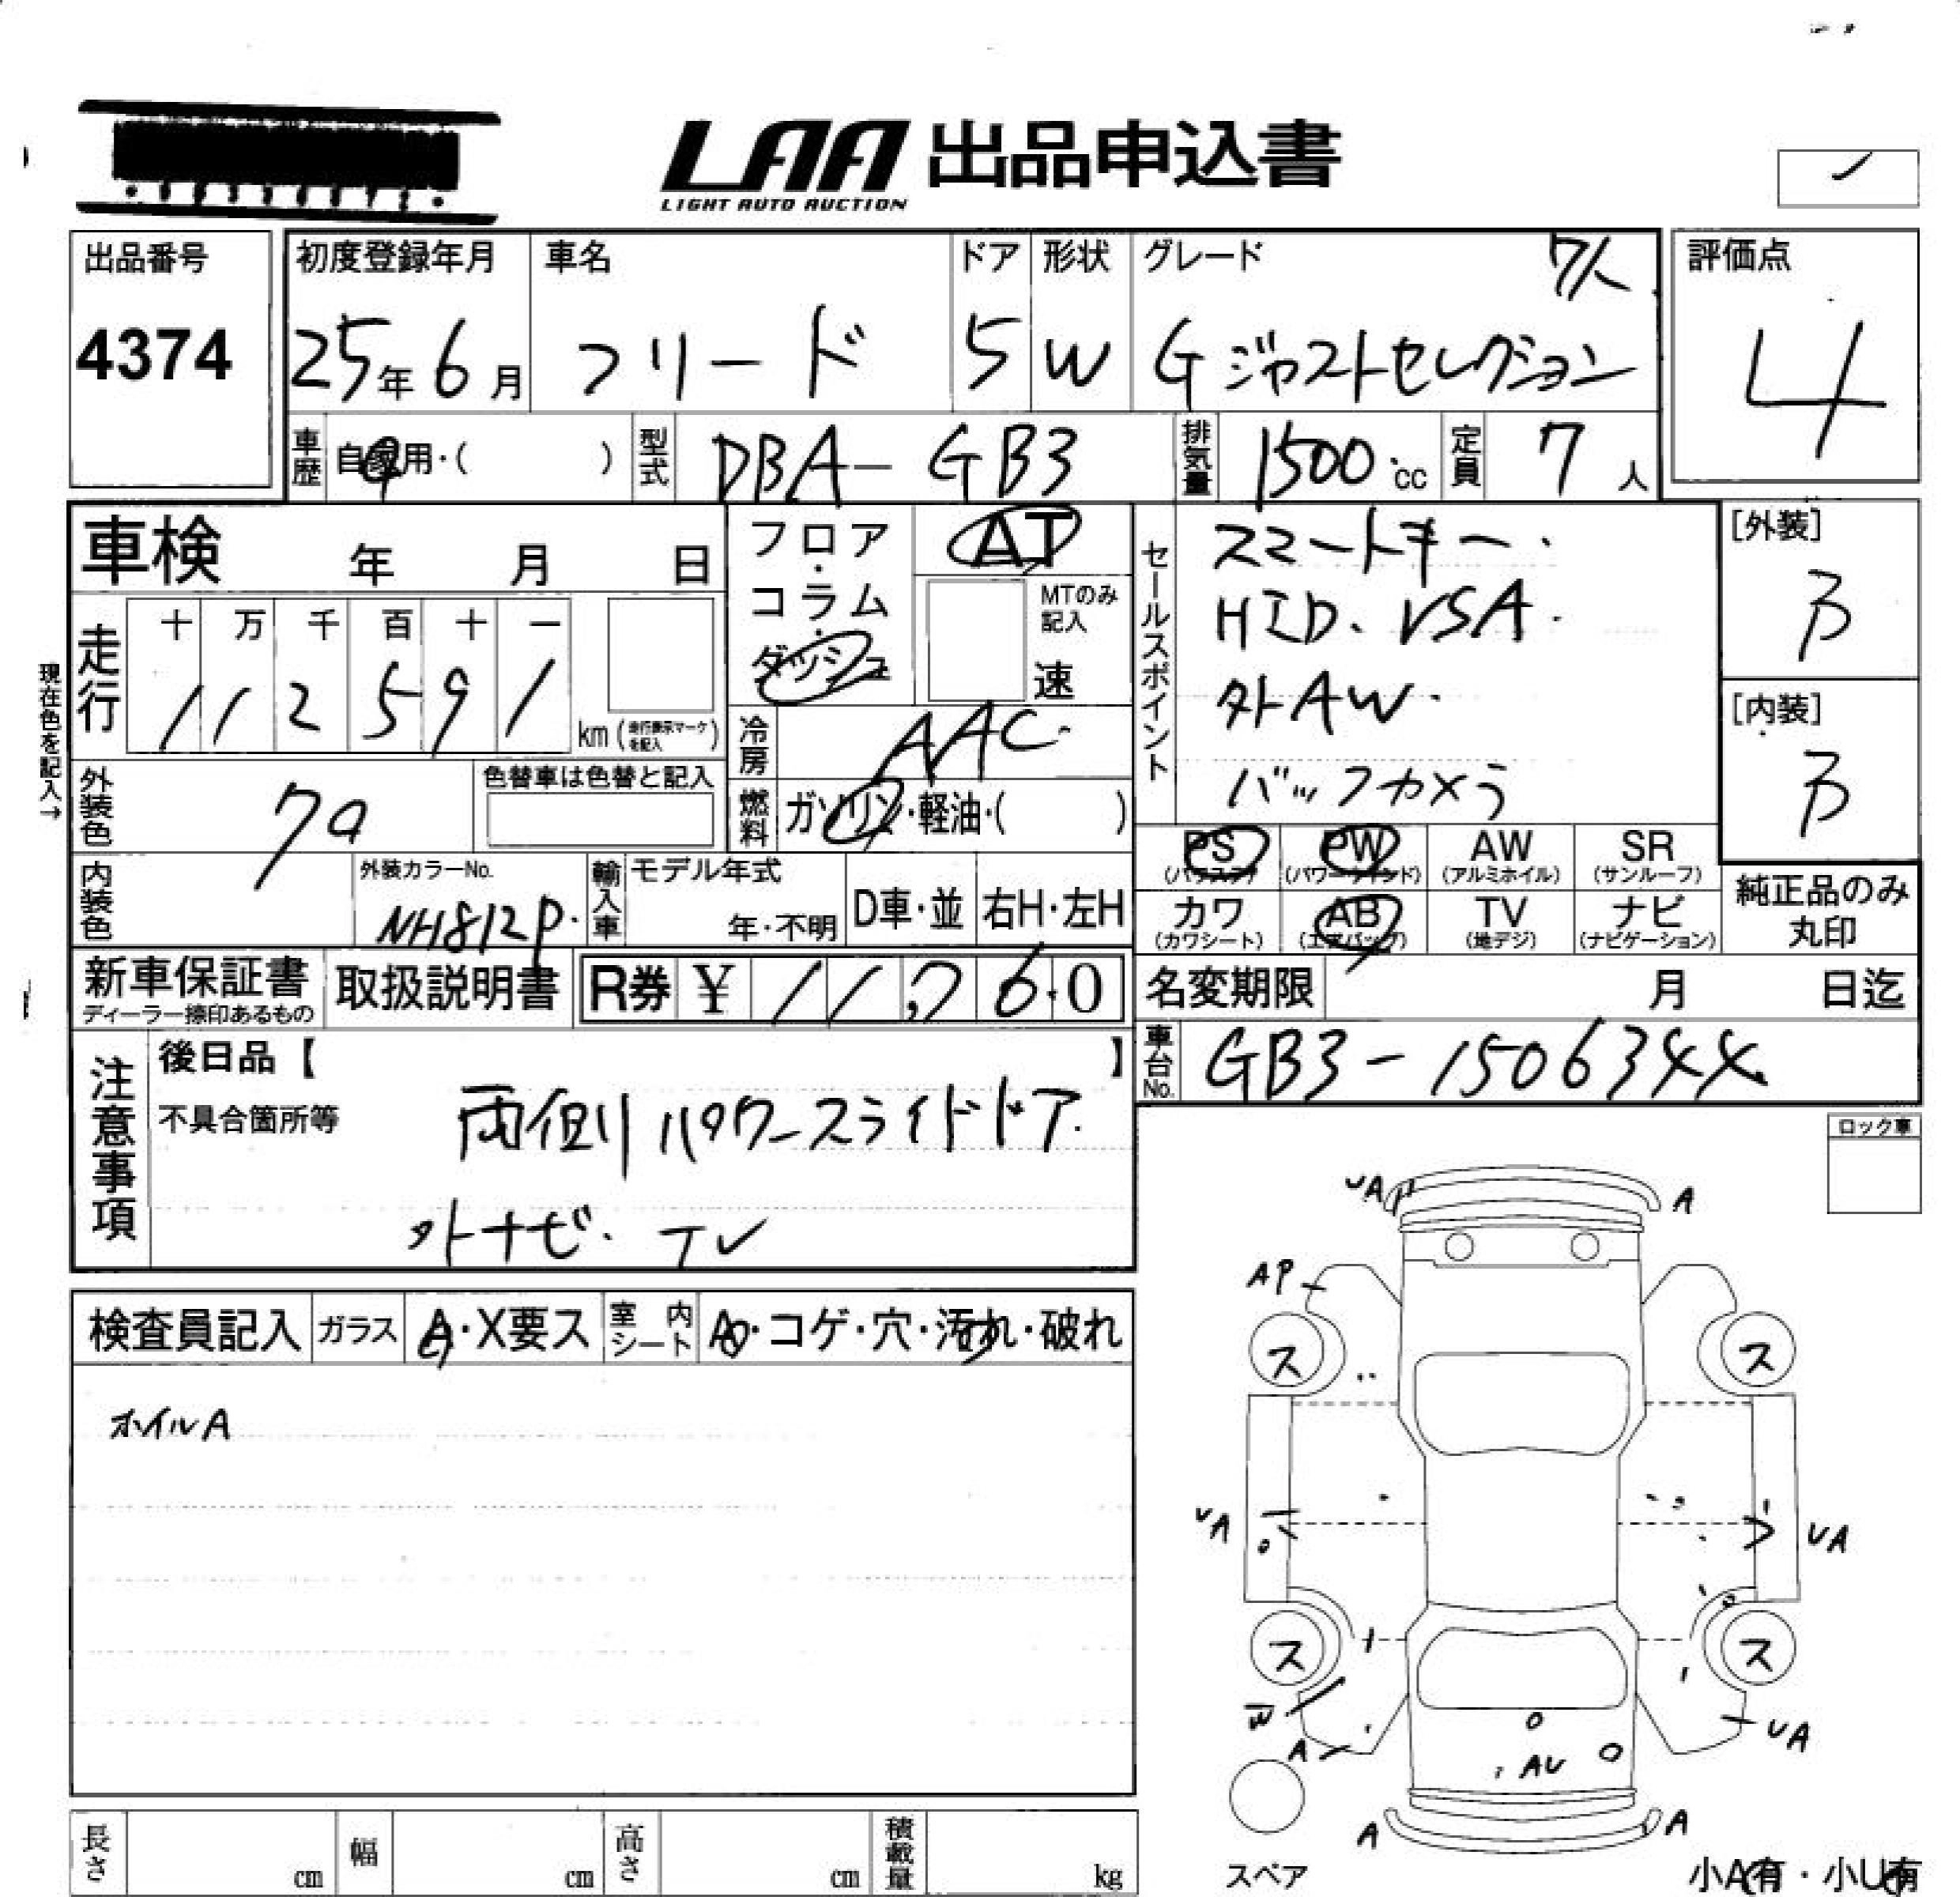 LAA 出品申込書
LIGHT AUTO AUCTION
出品番号
4374
初度登録年月
25年6月
車名
フリード
ドア
5
形状
W
グレード 7人
Gジャストセレクション
評価点
4
車歴 自家用・( )
型式 DBA-GB3
排気量 1500cc
定員 7人
車検 年 月 日
フロア・コラム・ダッシュ
AT
MTのみ記入
速
セールスポイント
スマートキー・
HID、VSA・
外AW・
バックカメラ
[外装]
B
[内装]
B
現在色を記入→
走行
十 万 千 百 十 一
112591
km(走行表示マークを記入)
冷房 AAC
燃料 ガソリン・軽油・( )
外装色
色替車は色替と記入
内装色
外装カラーNo.
NH812P
輸入車
モデル年式
年・不明
D車・並
右H・左H
PS (パワステ)
PW (パワーウインド)
AW (アルミホイル)
SR (サンルーフ)
カワ (カワシート)
AB (エアバッグ)
TV (地デジ)
ナビ (ナビゲーション)
純正品のみ丸印
新車保証書
ディーラー捺印あるもの
取扱説明書
R券 ¥ 11,760
名変期限 月 日迄
車台No. GB3-1506344
注意事項
後日品【 】
不具合箇所等
両側パワースライドドア
外ナビ・TV
ロック車
検査員記入
ガラス A・X要ス
室内シート A・コゲ・穴・汚れ・破れ
ホイルA
UA
A
AP
ス
ス
UA
UA
ス
ス
W
A
UA
AU
A
A
スペア
小A有・小U有
長さ cm
幅 cm
高さ cm
積載量 kg